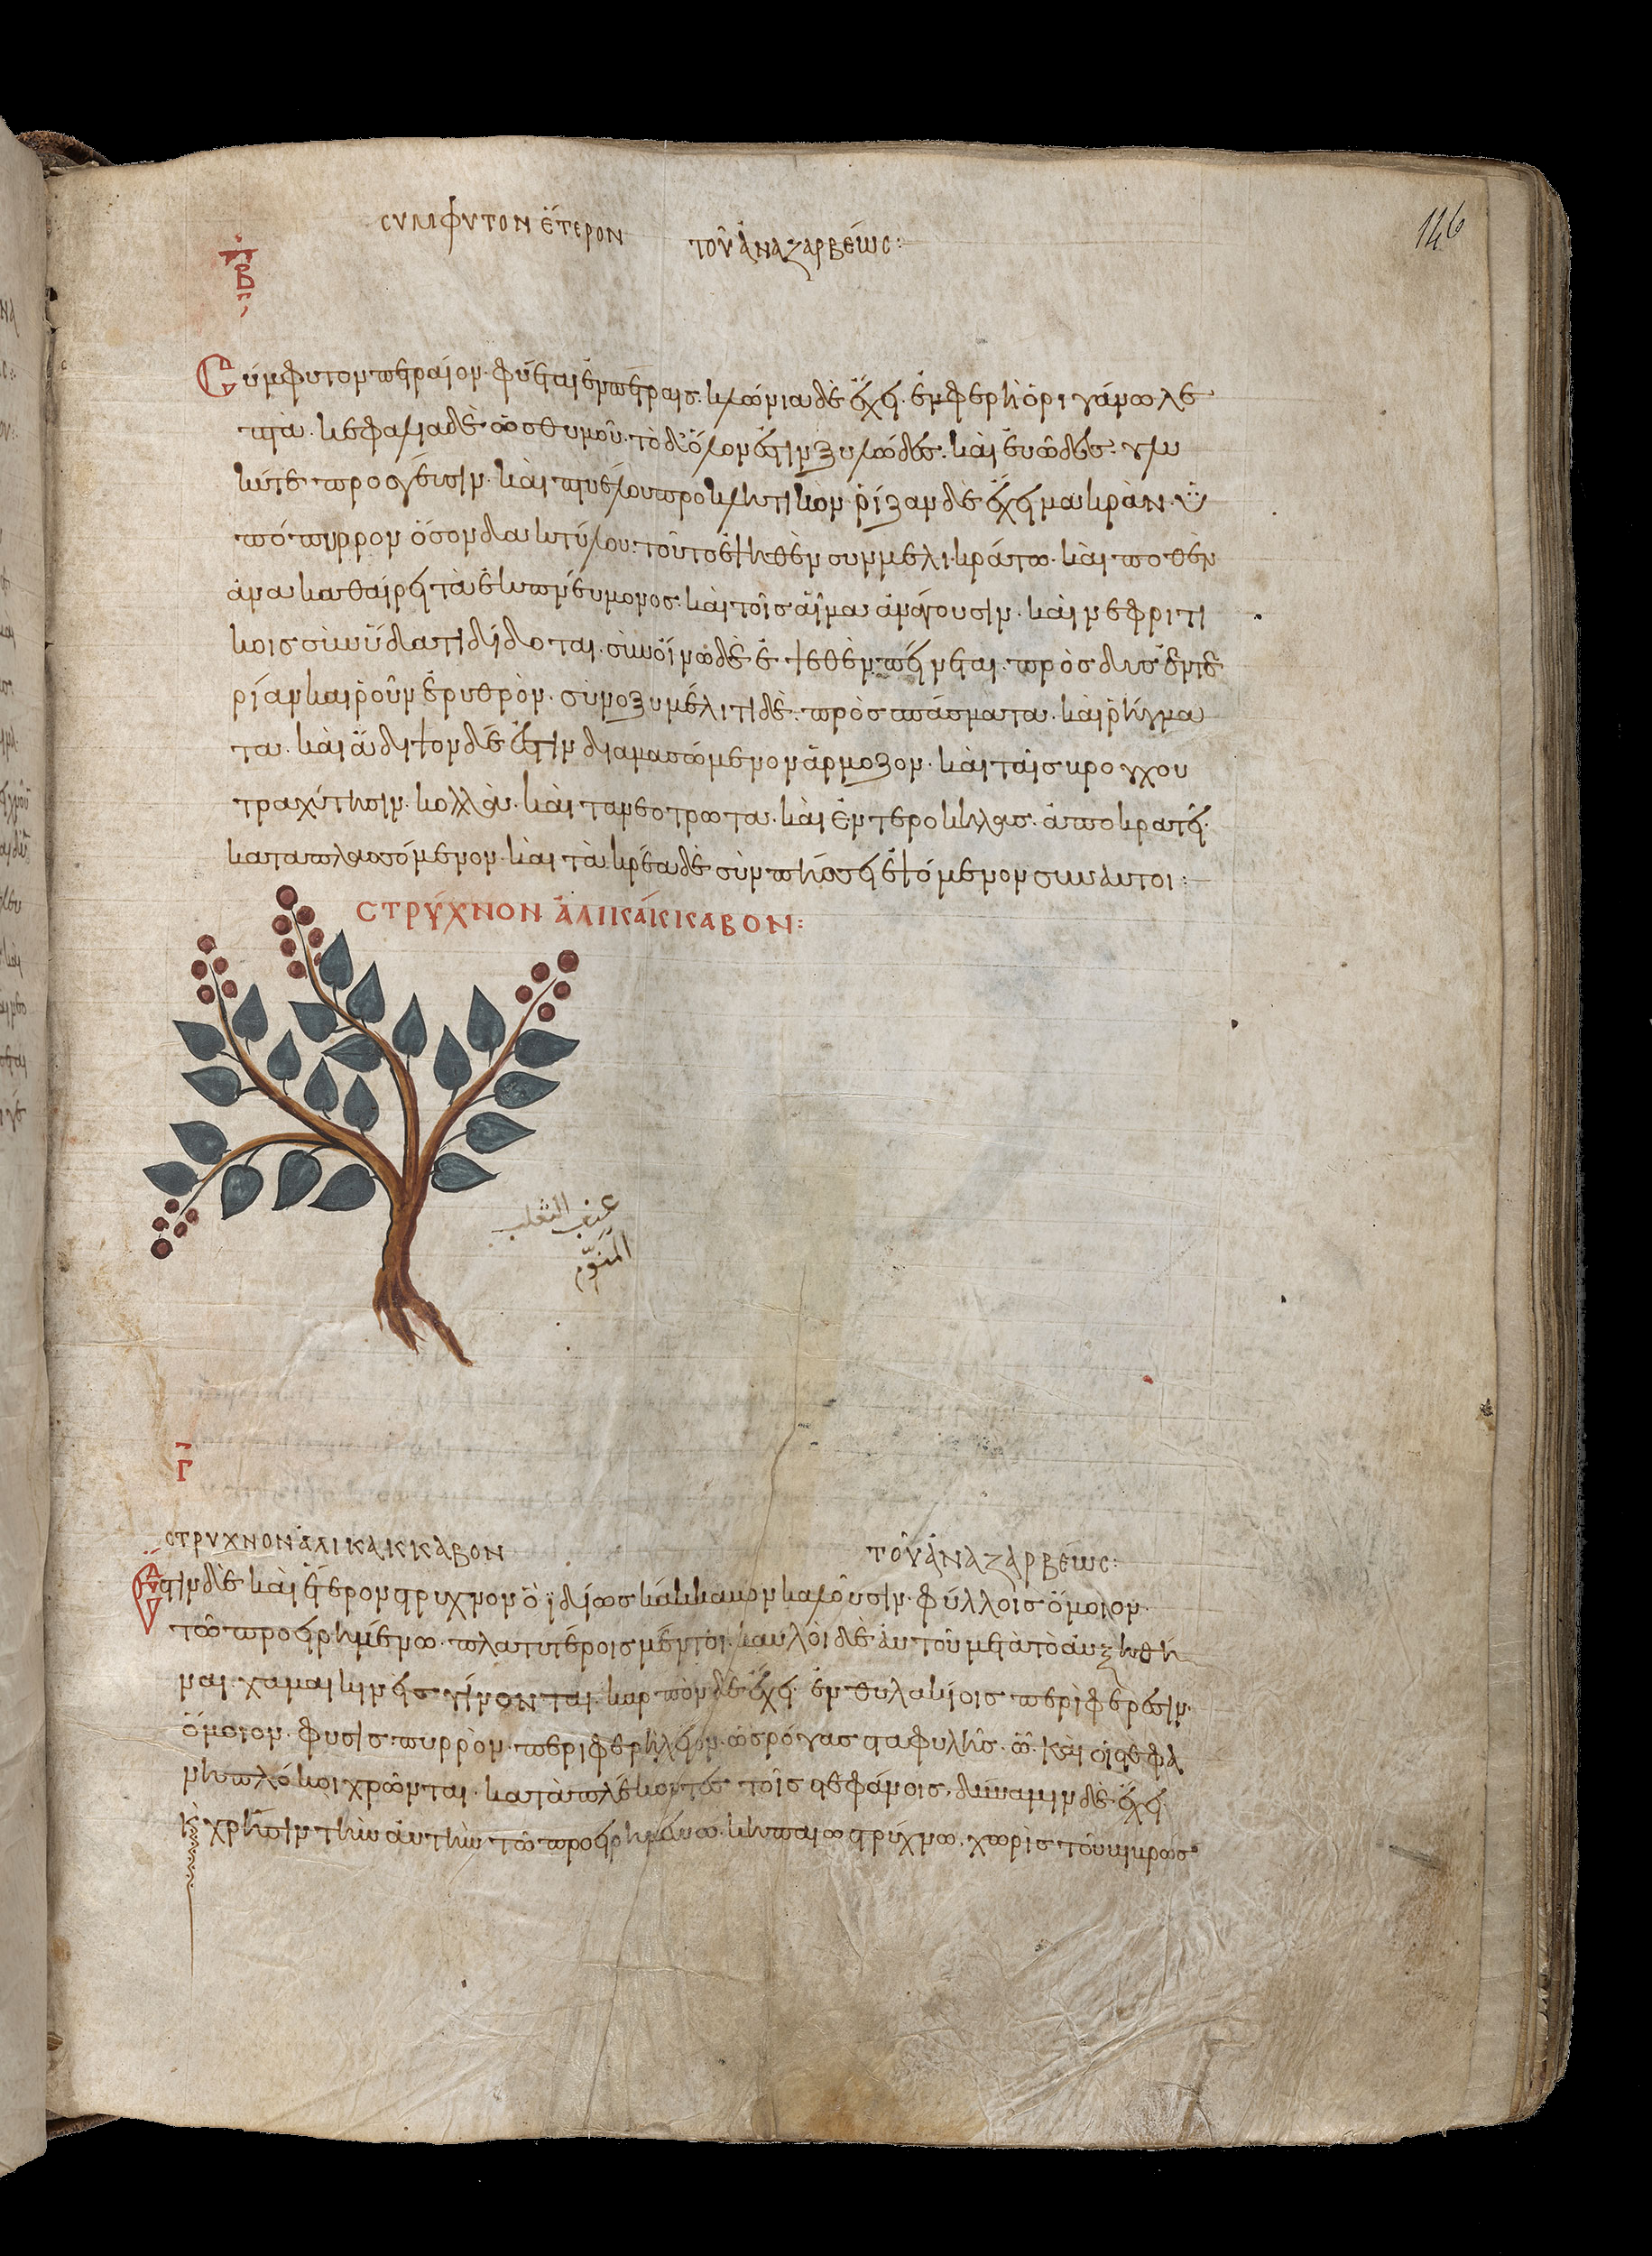 ϹΥΜΦΥΤΟΝ ἝΤΕΡΟΝ ΤΟΥ͂ ἈΝΑΖΑΡΒΕΏϹ:
146
Β
Σύμφυτον πετραῖον· φύεται ἐν πέτραις· κλωνία δὲ ἔχει· ἐμφερῆ ὀριγάνω λε
πτὰ· κεφάλια δὲ ὡς θυμοῦ· τὸ δ' ὅλον ἐστὶν ξυλῶδες· καὶ εὐῶδες· γλυ
κύ τε προσγεῦσιν· καὶ πτυέλου προκλητικὸν· ῥίζαν δὲ ἔχει μακρὰν· ὑ
πόπυρρον ὅσον δακτύλου· τοῦτο ἑψηθὲν συν μελικράτω· καὶ ποθὲν
ἀνακαθαίρει τὰ ἐκ πνεύμονος· καὶ τοῖς αἷμα ἀνάγουσιν· καὶ νεφριτι
κοις σὺν ὕδατι δίδοται· σὺν οἴνω δὲ ἑψεθὲν πίνεται· πρὸς δυσεντε
ρίαν καὶ ῥοῦν ἐρυθρὸν· σὺν οξυμέλιτι δὲ· πρὸς σπάσματα· καὶ ῥήγμα
τα· καὶ ἄδιψον δέ ἐστιν διαμασώμενον ἁρμοζον· καὶ ταῖς βρογχου
τραχύτησιν· κολλᾶν· καὶ τα νεοτρωτα· καὶ ἐντεροκήλας· ἀποκρατεῖ·
καταπλασσόμενον· καὶ τὰ κρέα δὲ σὺμπήσσει ἑψόμενον σὺν αυτοι:
ϹΤΡΎΧΝΟΝ ἈΛΙΚΆΚΚΑΒΟΝ:
عنب الثعلب
المنوّم
Γ
ϹΤΡΥΧΝΟΝ ἈΛΙΚΑΚΚΑΒΟΝ ΤΟΥ͂ ἈΝΑΖΑΡΒΕΏϹ:
Ἔστιν δὲ καὶ ἕτερον στρυχνον ὃ ἰδίως κάκκαβον καλοῦσιν· φύλλοις ὅμοιον·
τῶ προειρημένω· πλατυτέροις μέντοι· καυλὸι δὲ ἀυτοῦ μετὰ τὸ ἀυξηθῆ
ναι· χαμαικινεῖς γίνονται· καρπὸν δὲ ἔχει· ἐν θυλακίοις περιφερέσιν·
ὅμοιον· φυσις πυρρὸν· περιφερῆ λεῖον· ὡς ρόγας σταφυλῆς· ὧ· καὶ οἱ στεφα
νηπλόκοι χρῶνται· καταπλέκοντες τοῖς στεφάνοις· δύναμιν δὲ ἔχει
κ χρῆσιν τὴν ἀυτὴν τῶ προειρημένω· κηπαίω στρύχνω, χωρὶς τοῦ